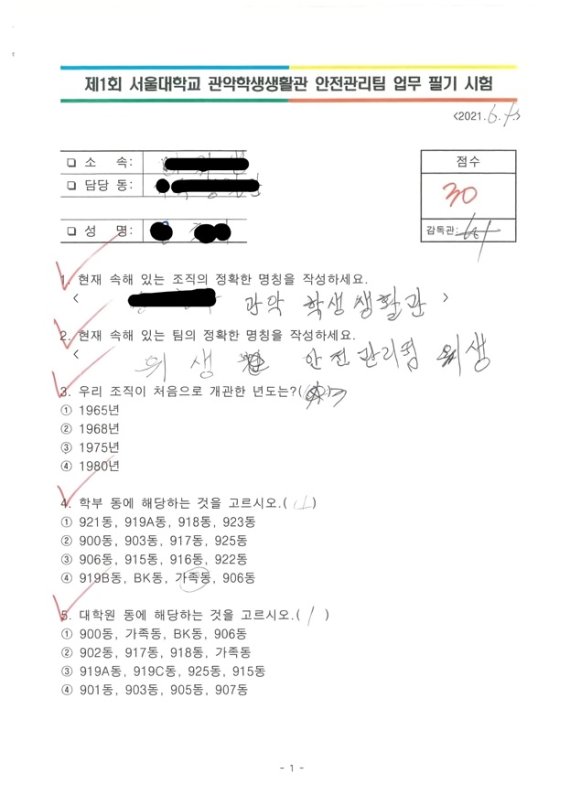 제1회 서울대학교 관악학생생활관 안전관리팀 업무 필기 시험
<2021.6.
□ 소 속:
□ 담당 동:
□ 성 명:
점수
30
감독관:
1. 현재 속해 있는 조직의 정확한 명칭을 작성하세요.
< 관악 학생생활관 >
2. 현재 속해 있는 팀의 정확한 명칭을 작성하세요.
< 위생 안전관리팀 위생
3. 우리 조직이 처음으로 개관한 년도는?( )
① 1965년
② 1968년
③ 1975년
④ 1980년
4. 학부 동에 해당하는 것을 고르시오.( )
① 921동, 919A동, 918동, 923동
② 900동, 903동, 917동, 925동
③ 906동, 915동, 916동, 922동
④ 919B동, BK동, 가족동, 906동
5. 대학원 동에 해당하는 것을 고르시오.( / )
① 900동, 가족동, BK동, 906동
② 902동, 917동, 918동, 가족동
③ 919A동, 919C동, 925동, 915동
④ 901동, 903동, 905동, 907동
- 1 -